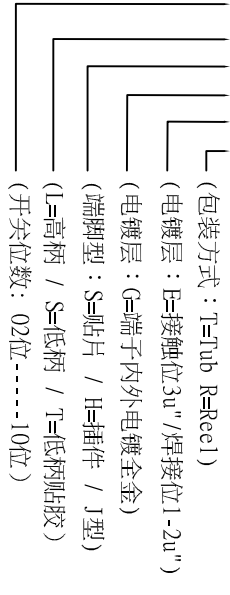 (包装方式：T=Tub R=Reel)
(电镀层：E=接触位3u"/焊接位1-2u")
(电镀层：G=端子内外电镀全金)
(端脚型：S=贴片 / H=插件 / J型)
(L=高柄 / S=低柄 / T=低柄贴胶)
(开关位数：02位-----10位)